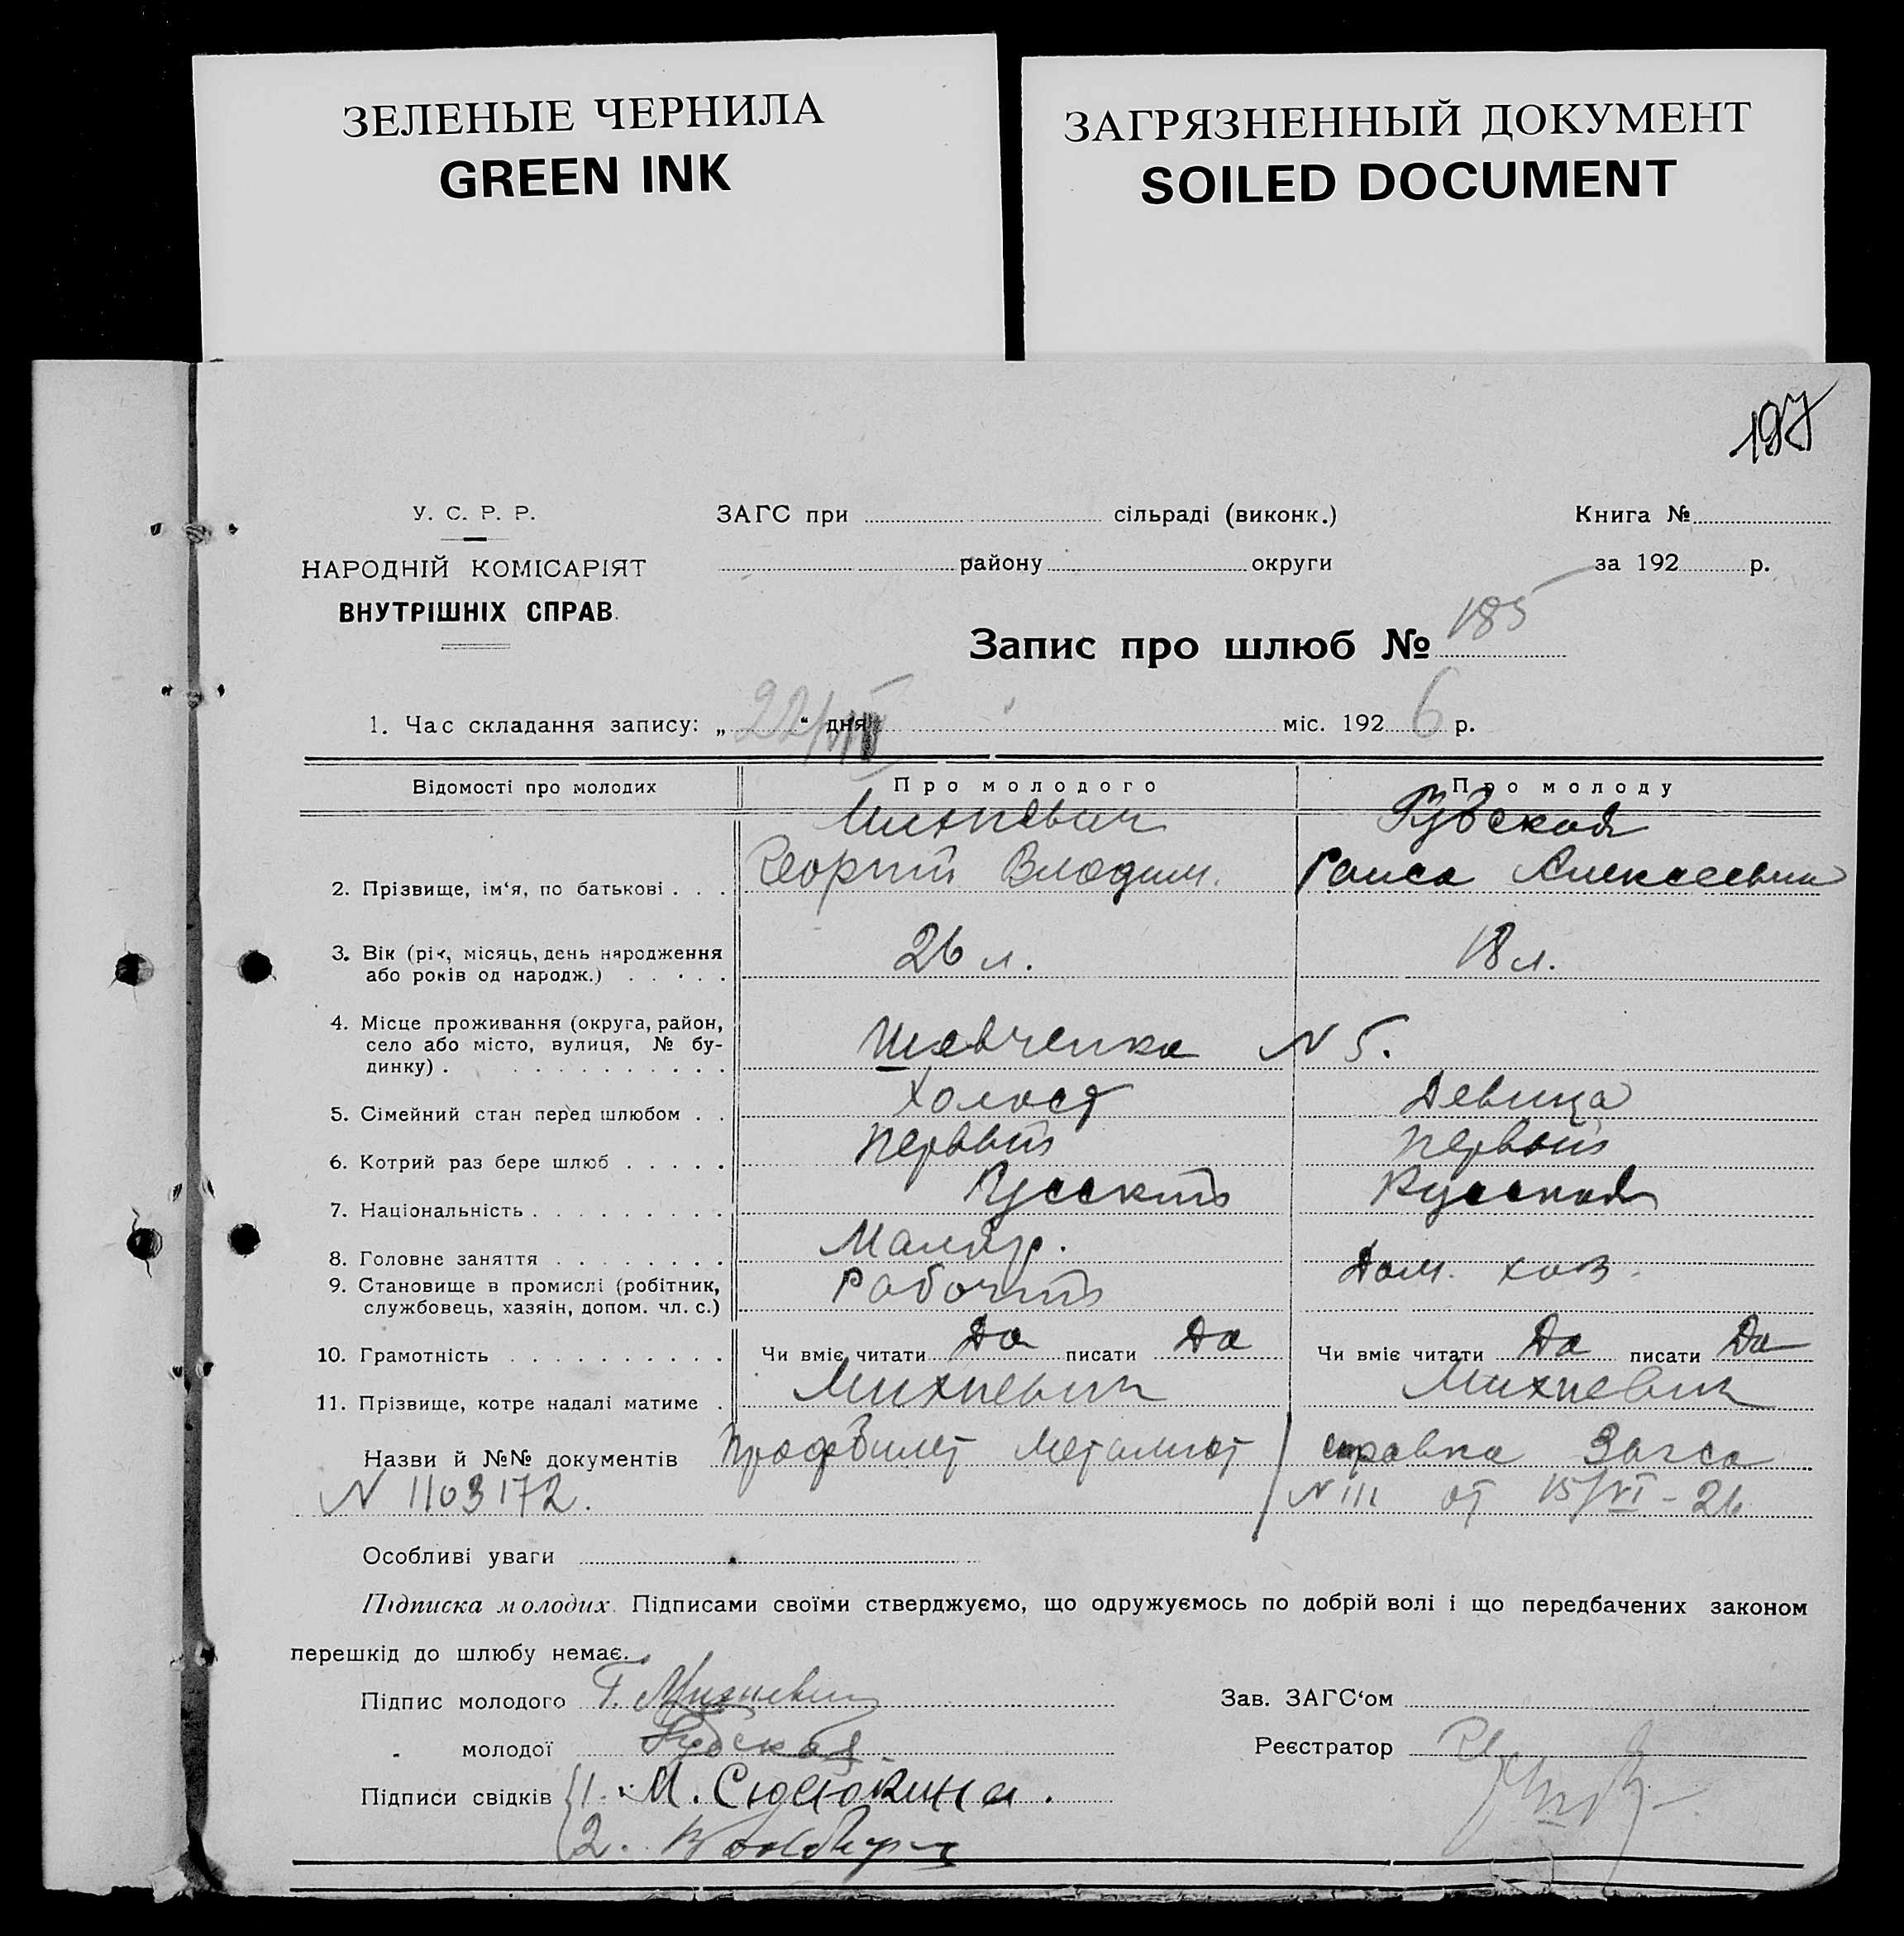 ЗЕЛЕНЫЕ ЧЕРНИЛА
GREEN INK
ЗАГРЯЗНЕННЫЙ ДОКУМЕНТ
SOILED DOCUMENT
197
У. С. Р. Р.
НАРОДНІЙ КОМІСАРІЯТ
ВНУТРІШНІХ СПРАВ.
ЗАГС при сільраді (виконк.)
району округи
Книга №
за 192 р.
Запис про шлюб № 185
1. Час складання запису: „22/VI“ дня міс. 1926 р.
Відомості про молодих Про молодого Про молоду
Михневич Рудская
2. Прізвище, ім‘я, по батькові . . . Георгий Владим. Раиса Алексеевна
3. Вік (рік, місяць, день народження
або років од народж.) . . . . . 26 л. 18 л.
4. Місце проживання (округа, район,
село або місто, вулиця, № бу-
динку) . . . . . . . . . . . Шевченка N 5.
5. Сімейний стан перед шлюбом . . Холост Девица
6. Котрий раз бере шлюб . . . . . Первый Первый
7. Національність . . . . . . . . . Русский Русская
8. Головне заняття . . . . . . . . Маляр. Дом. хоз.
9. Становище в промислі (робітник,
службовець, хазяїн, допом. чл. с.) Рабочий
10. Грамотність . . . . . . . . . . Чи вміє читати Да писати Да Чи вміє читати Да писати Да
11. Прізвище, котре надалі матиме . Михневич Михневич
Назви й №№ документів Профбилет Металист / справка Загса
N 1103172. N 111 от 15/VI-26
Особливі уваги
Підписка молодих. Підписами своїми стверджуємо, що одружуємось по добрій волі і що передбачених законом
перешкід до шлюбу немає.
Підпис молодого Г. Михневич Зав. ЗАГС‘ом
„ молодої Рудская Реєстратор
Підписи свідків 1. М.
2.